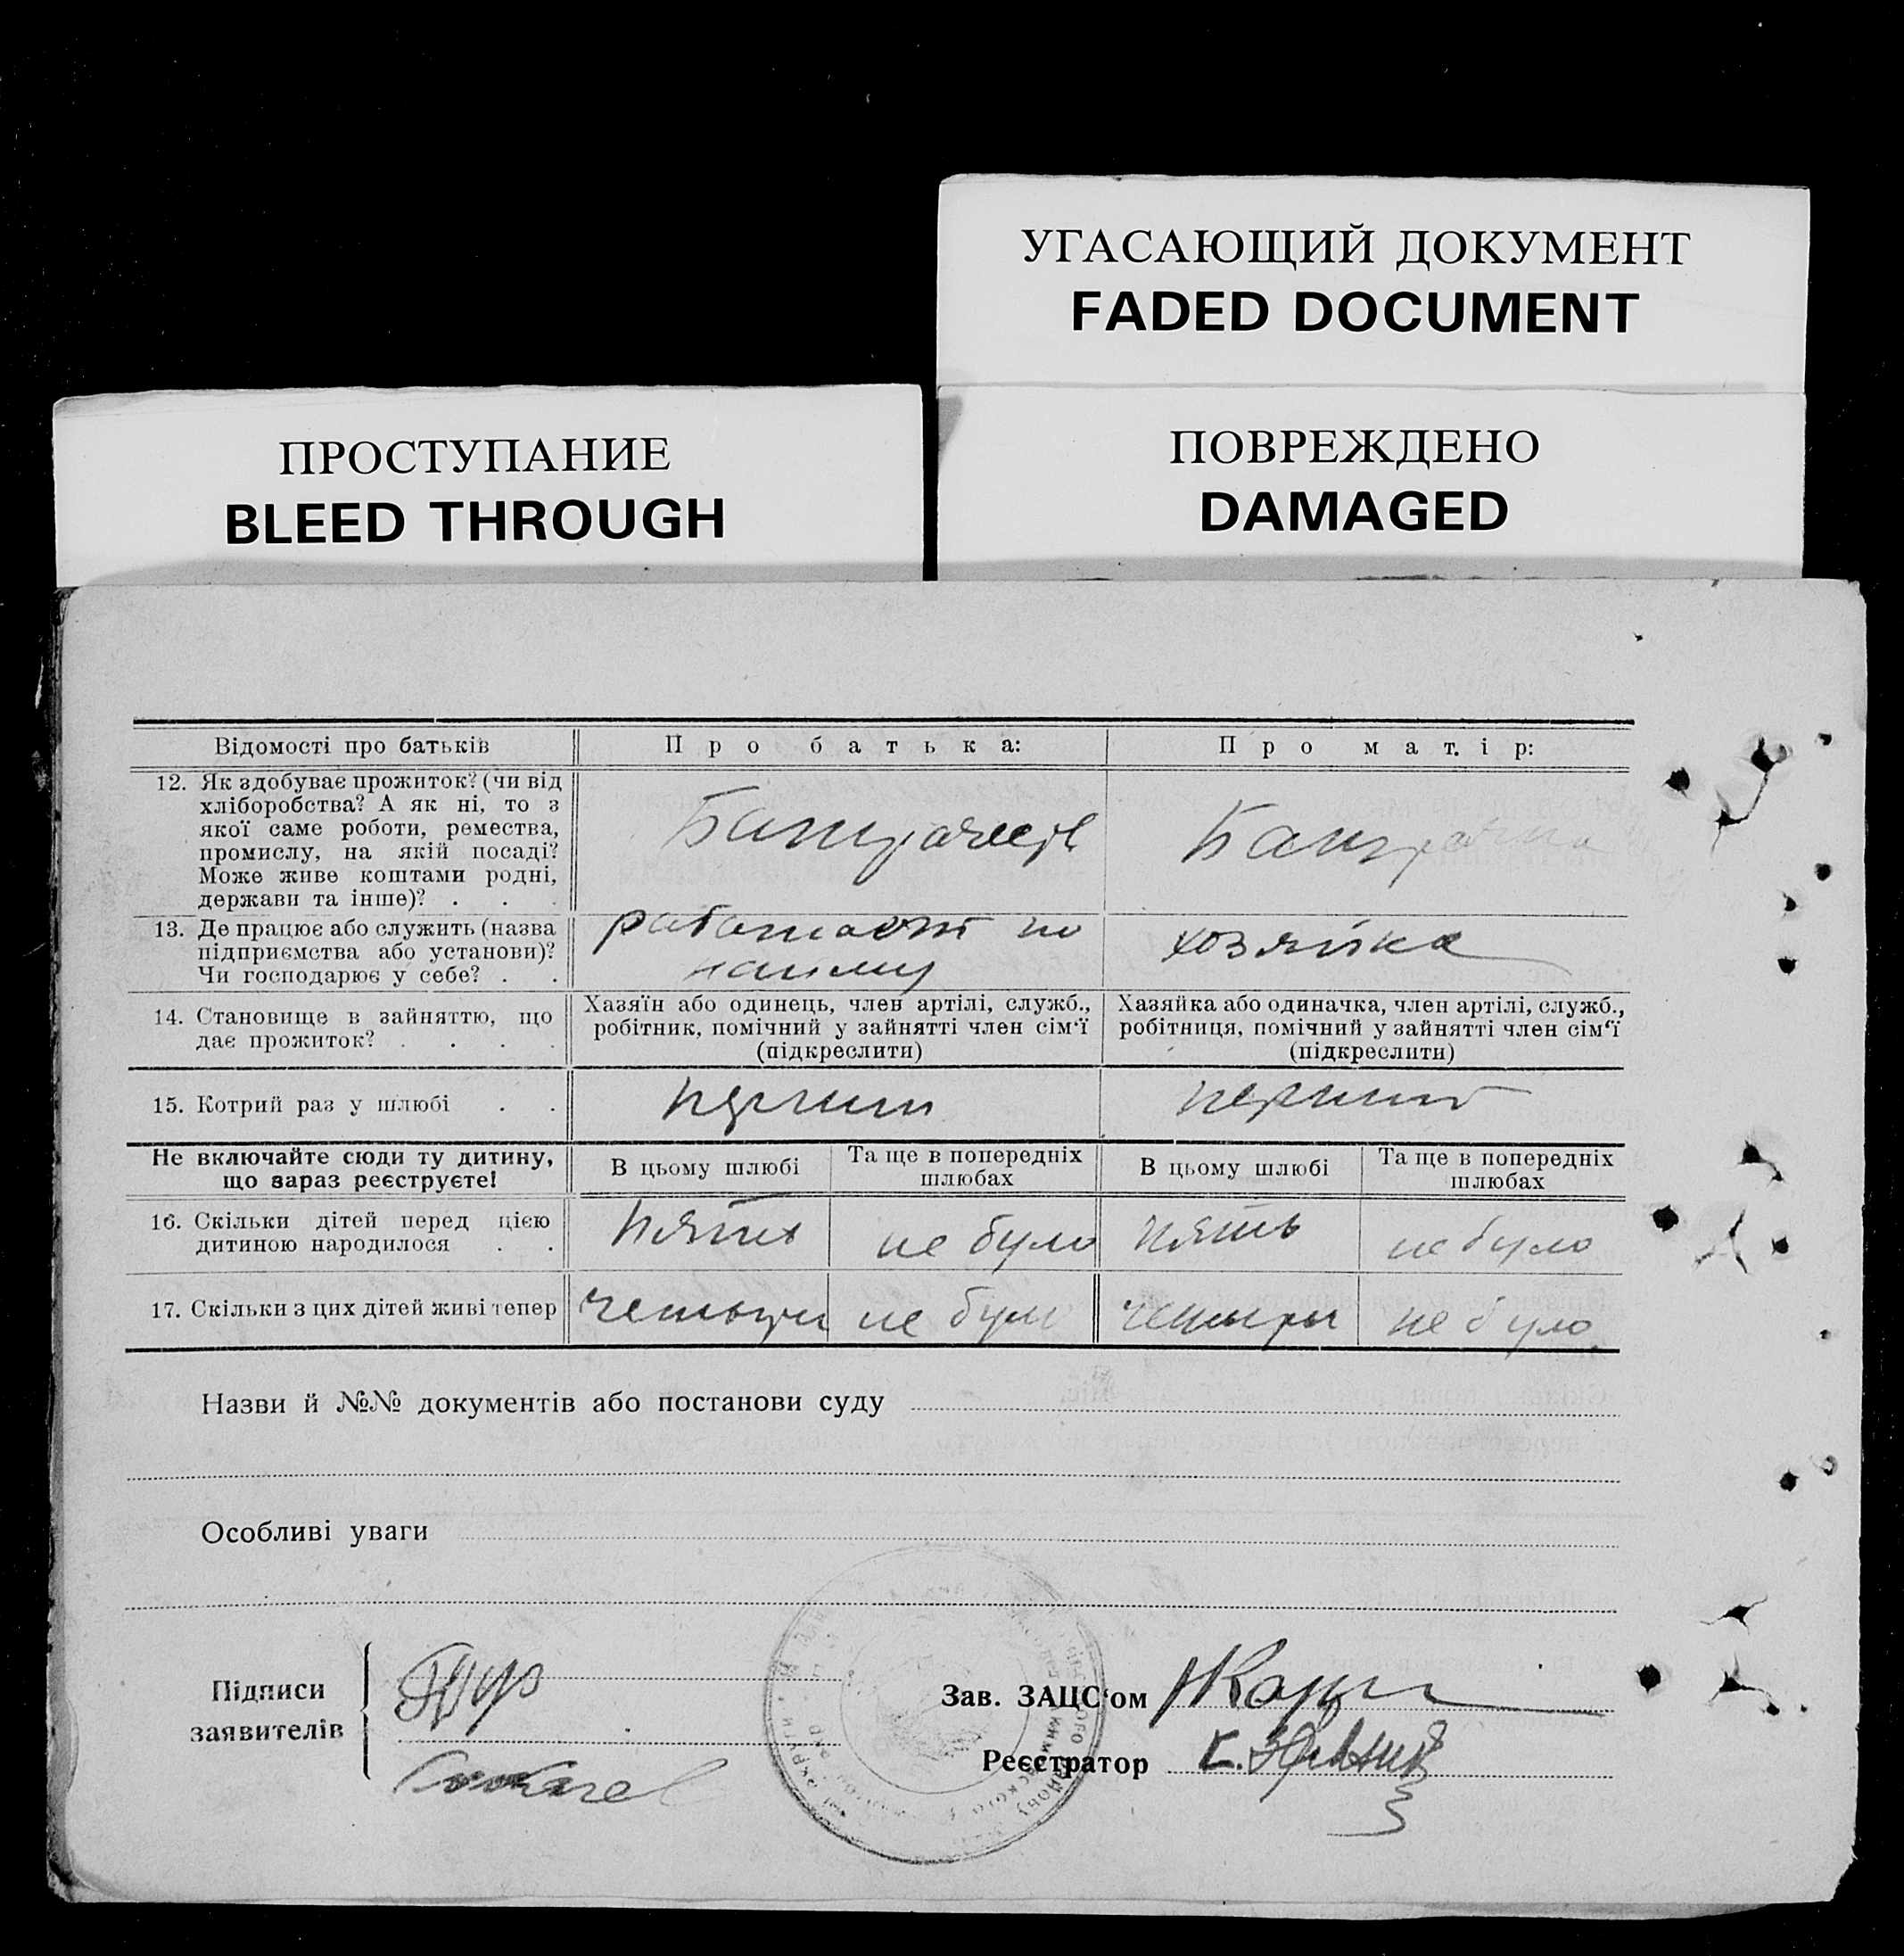 УГАСАЮЩИЙ ДОКУМЕНТ
FADED DOCUMENT
ПРОСТУПАНИЕ
BLEED THROUGH
ПОВРЕЖДЕНО
DAMAGED
Відомості про батьків
Про батька:
Про матір:
12. Як здобуває прожиток? (чи від
хліборобства? А як ні, то з
якої саме роботи, ремества,
промислу, на якій посаді?
Може живе коштами родні,
держави та інше)? . . .
13. Де працює або служить (назва
підприємства або установи)?
Чи господарює у себе? . .
работает по
найму
хозяйка
14. Становище в зайняттю, що
дає прожиток? . . . .
Хазяїн або одинець, член артілі, служб.,
робітник, помічний у зайнятті член сім'ї
(підкреслити)
Хазяйка або одиначка, член артілі, служб.,
робітниця, помічний у зайнятті член сім'ї
(підкреслити)
15. Котрий раз у шлюбі . .
Не включайте сюди ту дитину,
що зараз реєструєте!
В цьому шлюбі
Та ще в попередніх
шлюбах
В цьому шлюбі
Та ще в попередніх
шлюбах
16. Скільки дітей перед цією
дитиною народилося . .
пять
не було
пять
не було
17. Скільки з цих дітей живі тепер
не було
четыри
не було
Назви й №№ документів або постанови суду
Особливі уваги
Підписи
заявителів
Зав. ЗАЦС'ом
Реєстратор